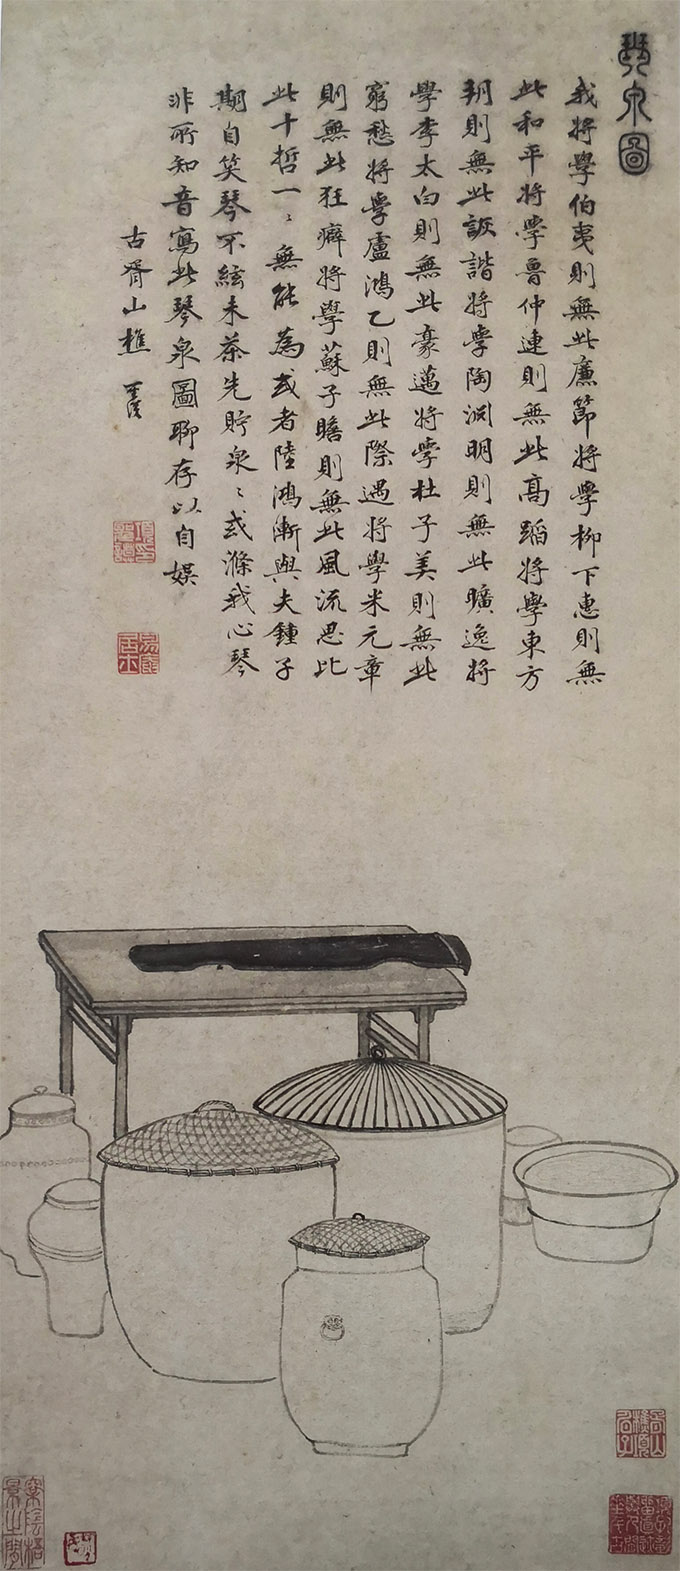 琴泉圖
我將學伯夷則無此廉節將學柳下惠則無
此和平將學魯仲連則無此高蹈將學東方
朔則無此詼諧將學陶淵明則無此曠逸將
學李太白則無此豪邁將學杜子美則無此
窮愁將學盧鴻乙則無此際遇將學米元章
則無此狂癖將學蘇子瞻則無此風流思比
此十哲一〻無能為或者陸鴻漸與夫鍾子
期自笑琴不絃未茶先貯泉〻或滌我心琴
非所知音寫此琴泉圖聊存以自娛
古胥山樵
項印聖謨
易庵居士